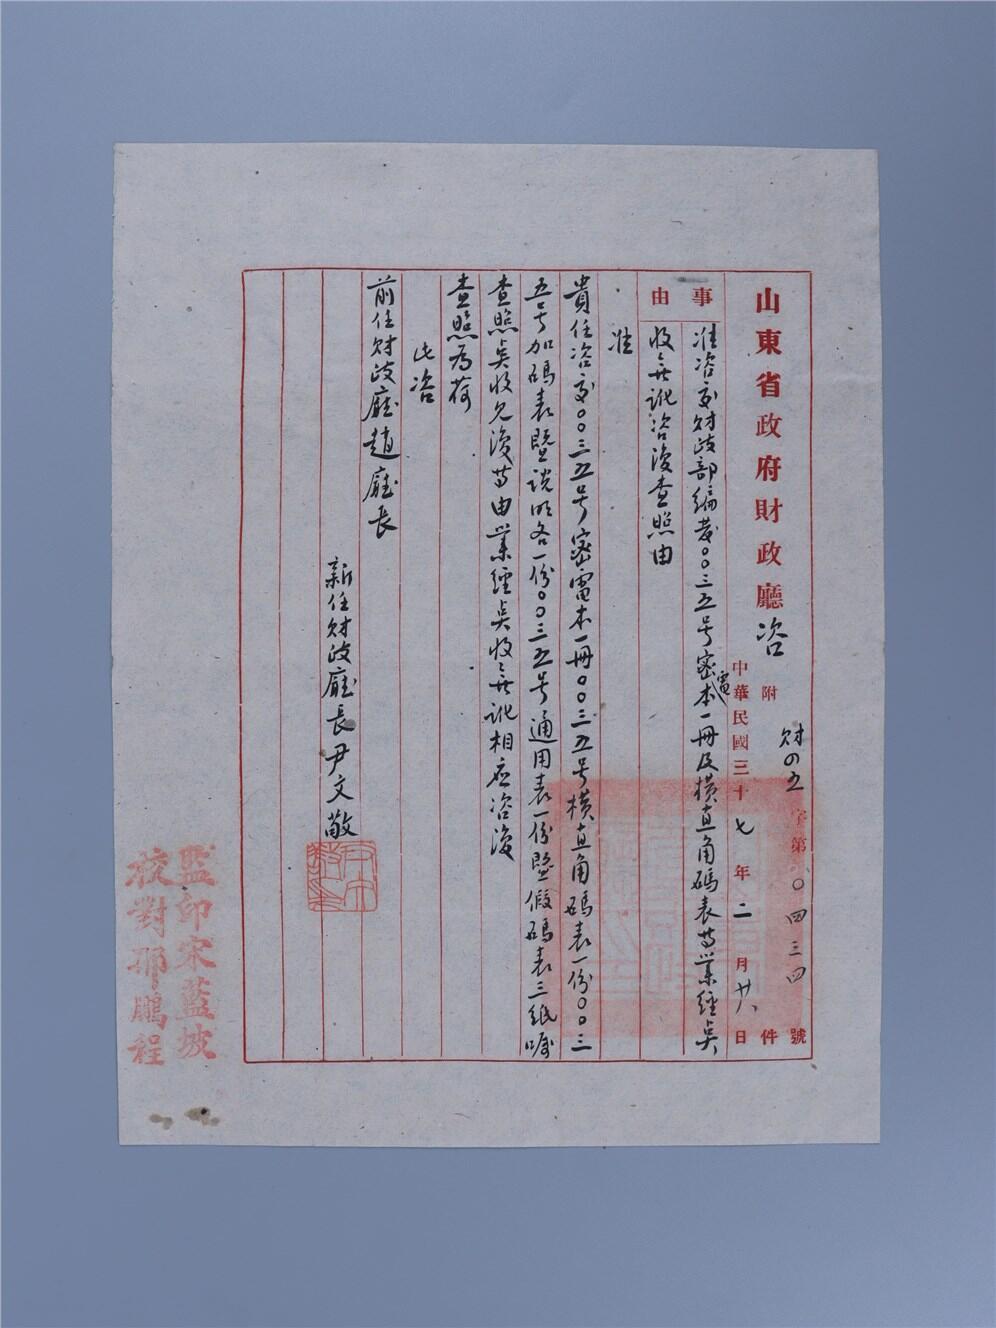 山東省政府財政廳咨
財四五字第〇四三四號
附 件
中華民國三十七年二月廿八日
事由
准咨交財政部編發〇〇三五号密電本一冊及橫直角碼表等業經点
收無訛咨復查照由
准
貴任咨交〇〇三五号密電本一冊〇〇三五号橫直角碼表一份〇〇三
五号加碼表暨説明各一份〇〇三五号通用表一份暨假碼表三紙囑
查照点收見復等由業經点收無訛相應咨復
查照為荷
此咨
前任財政廳趙廳長
新任財政廳長尹文敬
監印宋藍坡
校對邢鵬程